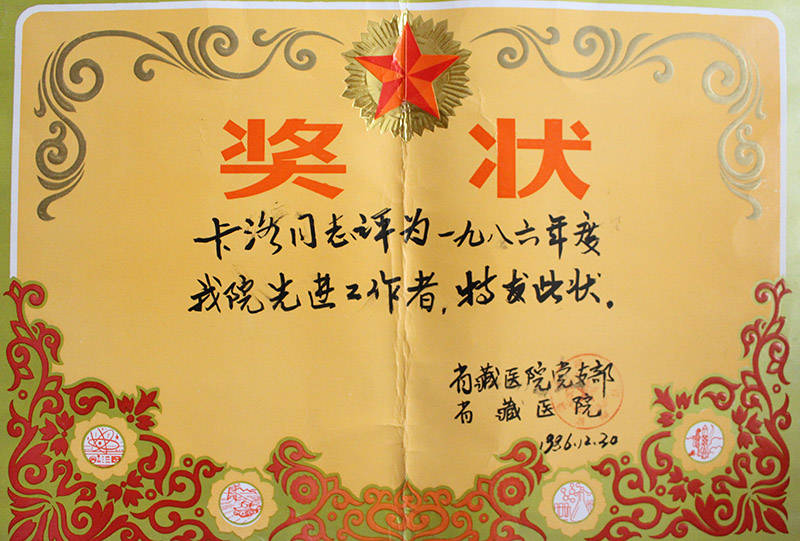 奖状
卡洛同志评为一九八六年度
我院先进工作者，特发此状。
省藏医院党支部
省藏医院
1986.12.30